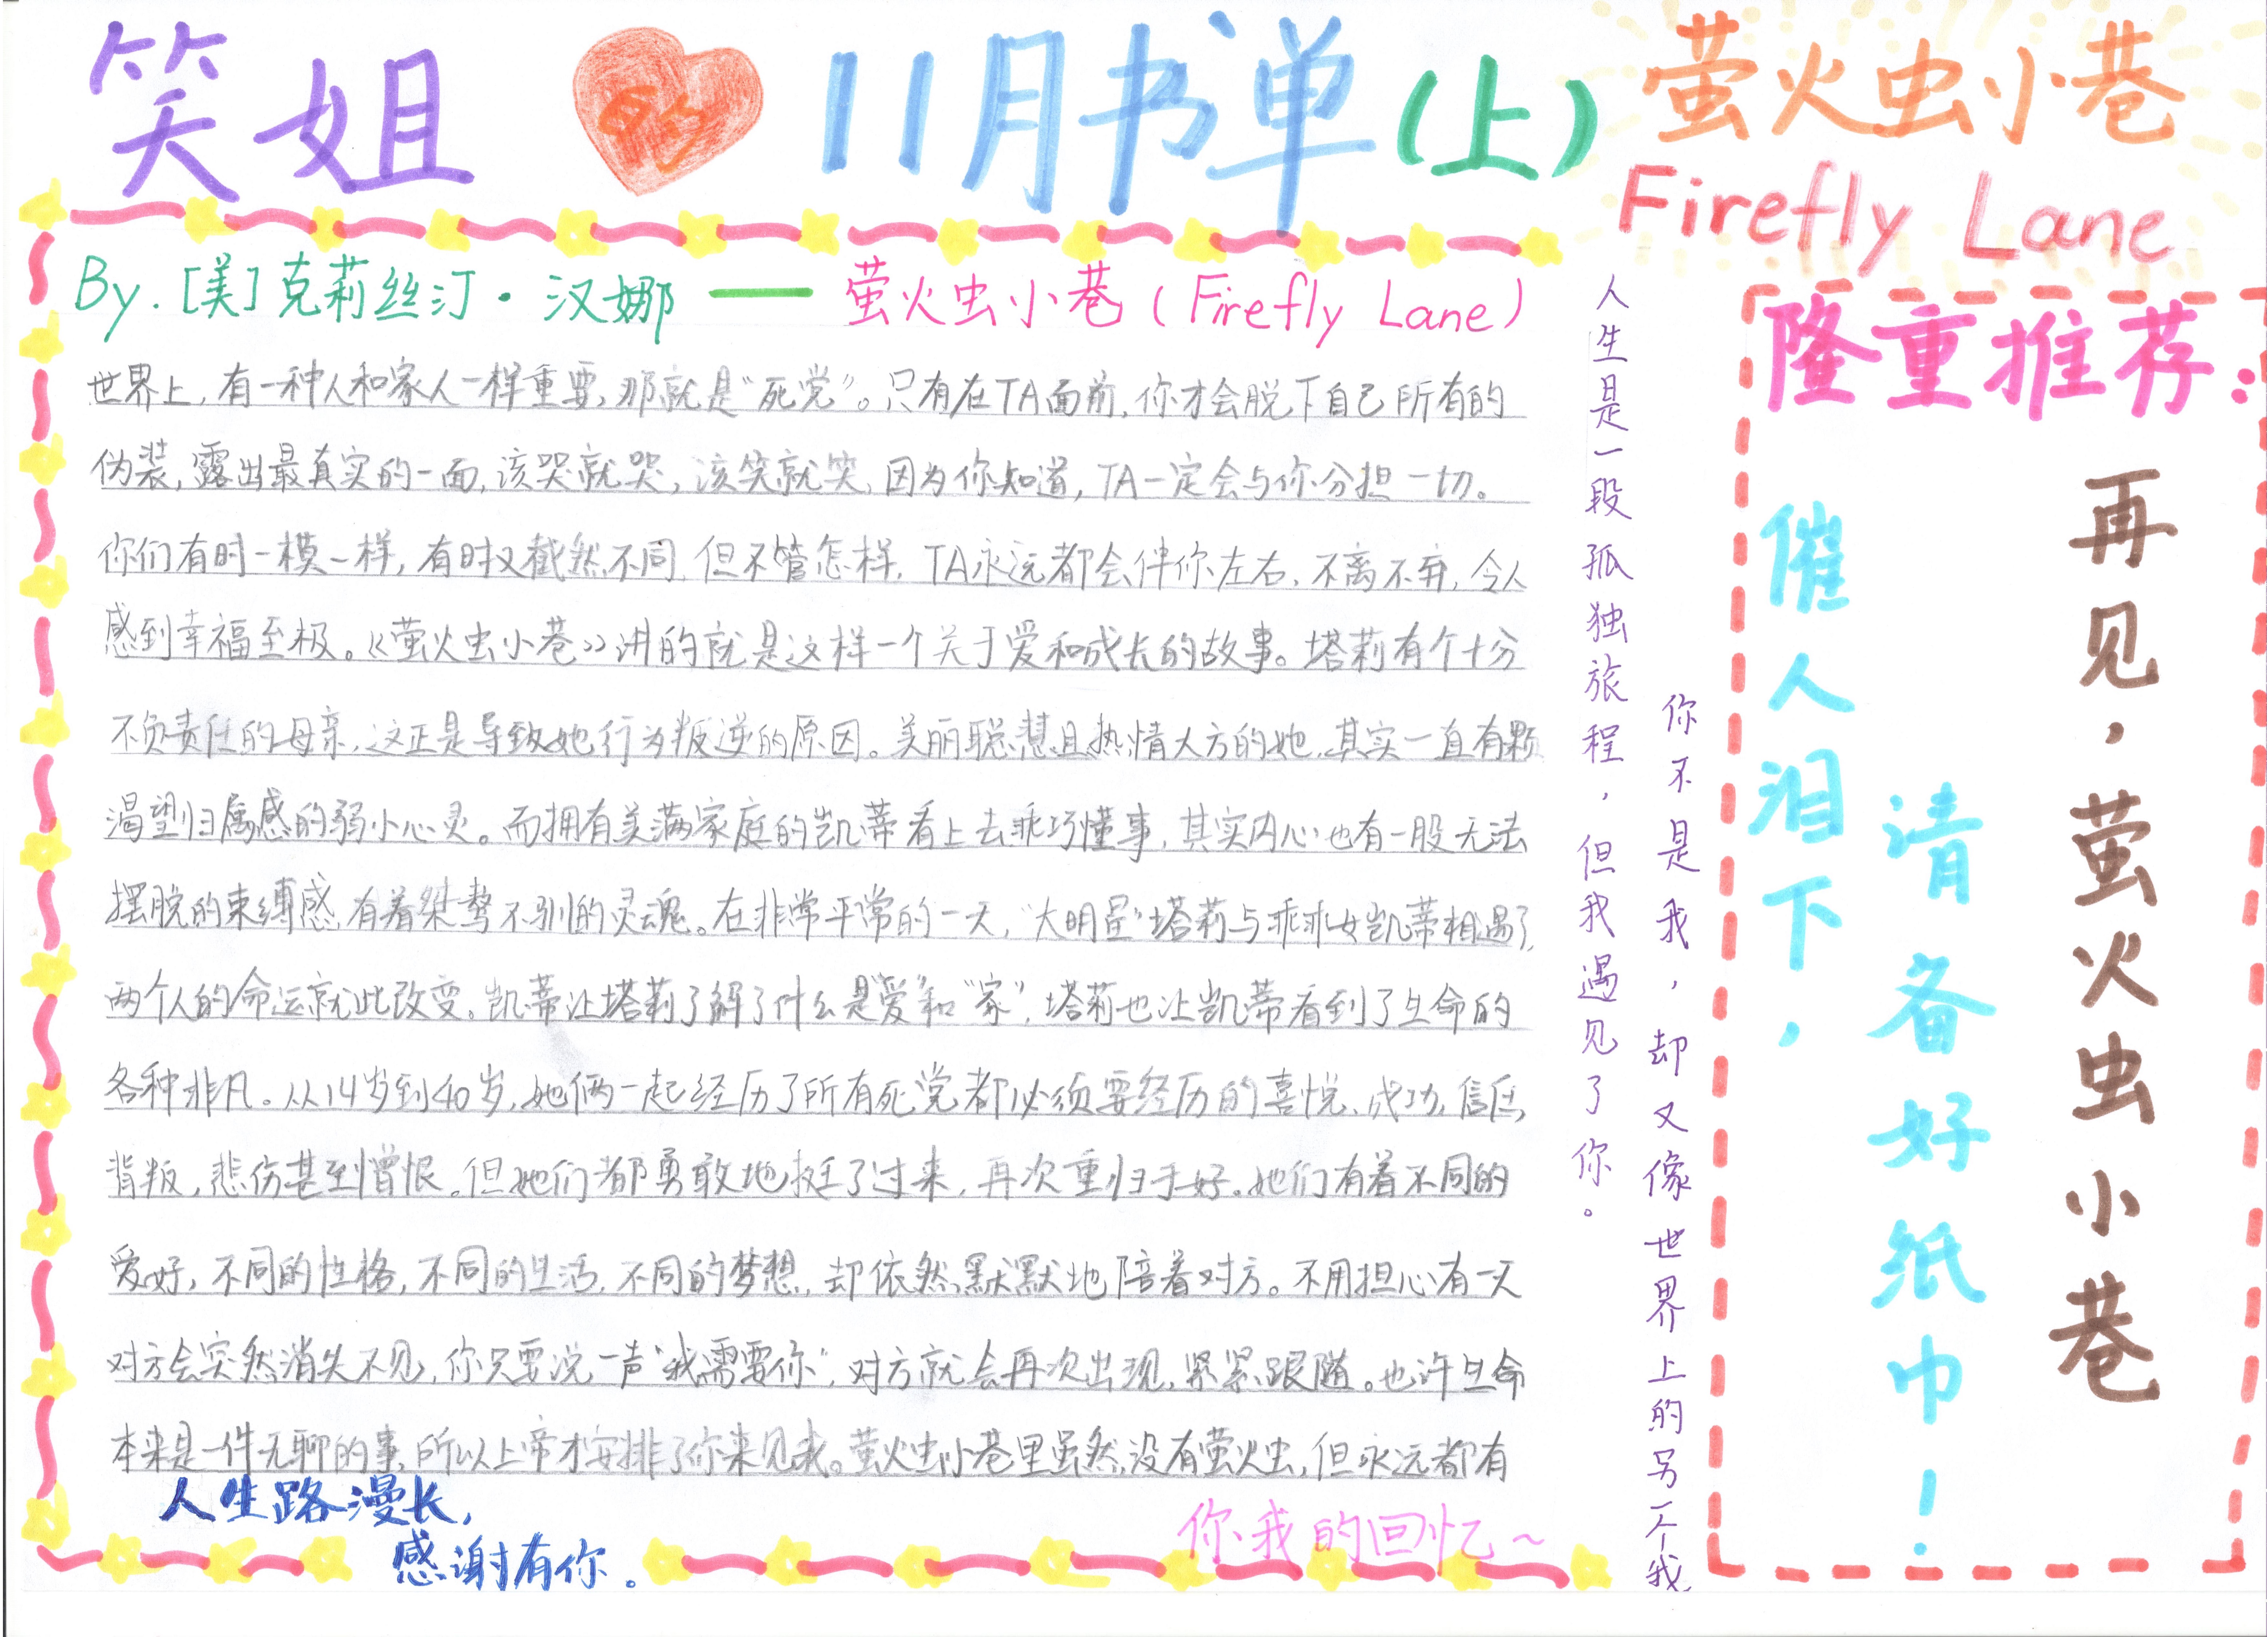 笑姐的11月书单(上)
萤火虫小巷
Firefly Lane
By.[美]克莉丝汀·汉娜 — 萤火虫小巷(Firefly Lane)
世界上,有一种人和家人一样重要,那就是"死党"。只有在TA面前,你才会脱下自己所有的
伪装,露出最真实的一面,该哭就哭,该笑就笑,因为你知道,TA一定会与你分担一切。
你们有时一模一样,有时又截然不同,但不管怎样,TA永远都会伴你左右,不离不弃,令人
感到幸福至极。《萤火虫小巷》讲的就是这样一个关于爱和成长的故事。塔莉有个十分
不负责任的母亲,这正是导致她行为叛逆的原因。美丽聪慧且热情大方的她,其实一直有颗
渴望归属感的弱小心灵。而拥有美满家庭的凯蒂看上去乖巧懂事,其实内心也有一股无法
摆脱的束缚感,有着桀骜不驯的灵魂。在非常平常的一天,"大明星"塔莉与乖乖女凯蒂相遇了,
两个人的命运就此改变。凯蒂让塔莉了解了什么是"爱"和"家",塔莉也让凯蒂看到了生命的
各种非凡。从14岁到40岁,她俩一起经历了所有死党都必须要经历的喜悦、成功,信任,
背叛,悲伤甚至憎恨。但她们都勇敢地挺了过来,再次重归于好。她们有着不同的
爱好,不同的性格,不同的生活,不同的梦想,却依然默默地陪着对方。不用担心有一天
对方会突然消失不见,你只要说一声"我需要你",对方就会再次出现,紧紧跟随。也许生命
本来是一件无聊的事,所以上帝才安排了你来见我。萤火虫小巷里虽然没有萤火虫,但永远都有
你我的回忆~
人生路漫长,
感谢有你。
人生是一段孤独旅程,但我遇见了你。
你不是我,却又像世界上的另一个我
隆重推荐:
再见,萤火虫小巷
催人泪下,
请备好纸巾!